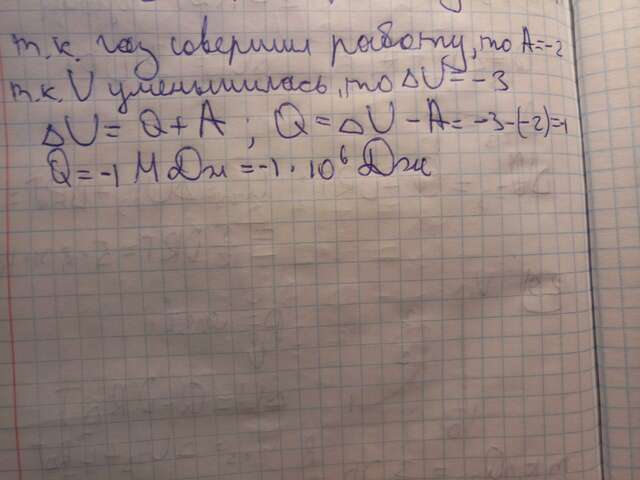 т.к. газ совершил работу, то A=-2
т.к. U уменьшилась, то ΔU=-3
ΔU= Q+A ; Q=ΔU-A=-3-(-2)=-1
Q=-1 МДж=-1·10⁶ Дж